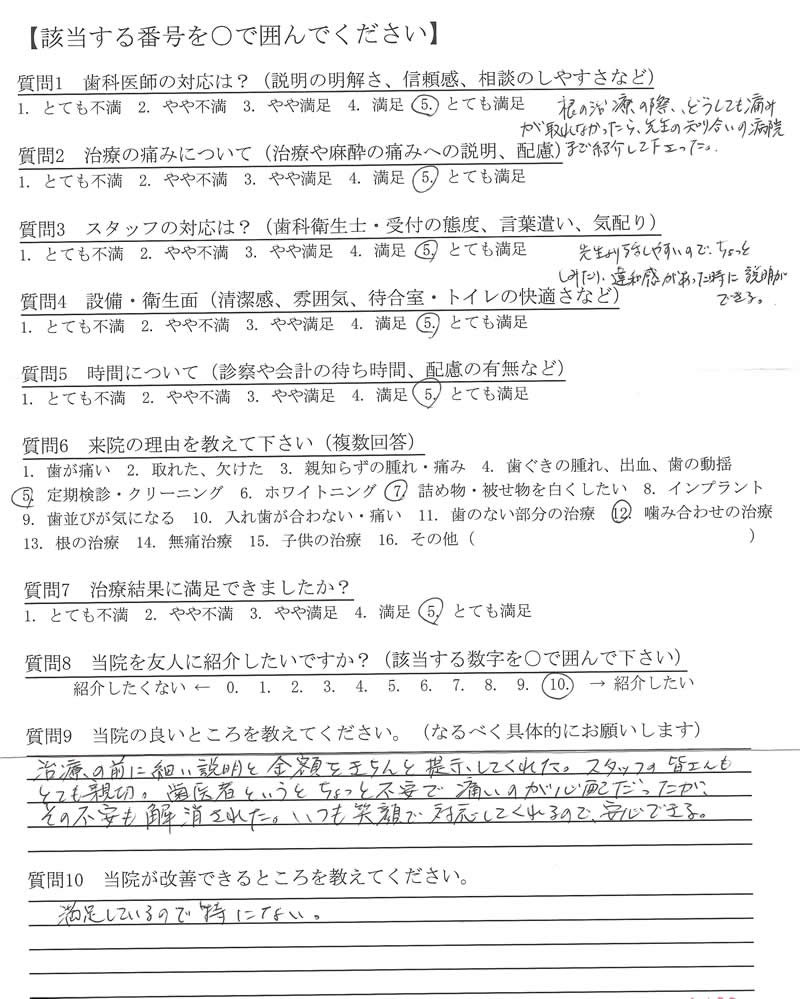 【該当する番号を〇で囲んでください】
質問1 歯科医師の対応は？（説明の明解さ、信頼感、相談のしやすさなど）
1. とても不満 2. やや不満 3. やや満足 4. 満足 5. とても満足
根の治療の際、どうしても痛み
が取れなかったら、先生の知り合いの病院
まで紹介して下さった。
質問2 治療の痛みについて（治療や麻酔の痛みへの説明、配慮）
1. とても不満 2. やや不満 3. やや満足 4. 満足 5. とても満足
質問3 スタッフの対応は？（歯科衛生士・受付の態度、言葉遣い、気配り）
1. とても不満 2. やや不満 3. やや満足 4. 満足 5. とても満足
先生より話しやすいので、ちょっと
しみたり、違和感があった時に説明が
できる。
質問4 設備・衛生面（清潔感、雰囲気、待合室・トイレの快適さなど）
1. とても不満 2. やや不満 3. やや満足 4. 満足 5. とても満足
質問5 時間について（診察や会計の待ち時間、配慮の有無など）
1. とても不満 2. やや不満 3. やや満足 4. 満足 5. とても満足
質問6 来院の理由を教えて下さい（複数回答）
1. 歯が痛い 2. 取れた、欠けた 3. 親知らずの腫れ・痛み 4. 歯ぐきの腫れ、出血、歯の動揺
5. 定期検診・クリーニング 6. ホワイトニング 7. 詰め物・被せ物を白くしたい 8. インプラント
9. 歯並びが気になる 10. 入れ歯が合わない・痛い 11. 歯のない部分の治療 12. 噛み合わせの治療
13. 根の治療 14. 無痛治療 15. 子供の治療 16. その他（ ）
質問7 治療結果に満足できましたか？
1. とても不満 2. やや不満 3. やや満足 4. 満足 5. とても満足
質問8 当院を友人に紹介したいですか？（該当する数字を〇で囲んで下さい）
紹介したくない ← 0. 1. 2. 3. 4. 5. 6. 7. 8. 9. 10. → 紹介したい
質問9 当院の良いところを教えてください。（なるべく具体的にお願いします）
治療の前に細い説明と金額をきちんと提示してくれた。スタッフの皆さんも
とても親切。歯医者というとちょっと不安で痛いのが心配だったが、
その不安も解消された。いつも笑顔で対応してくれるので、安心できる。
質問10 当院が改善できるところを教えてください。
満足しているので特にない。